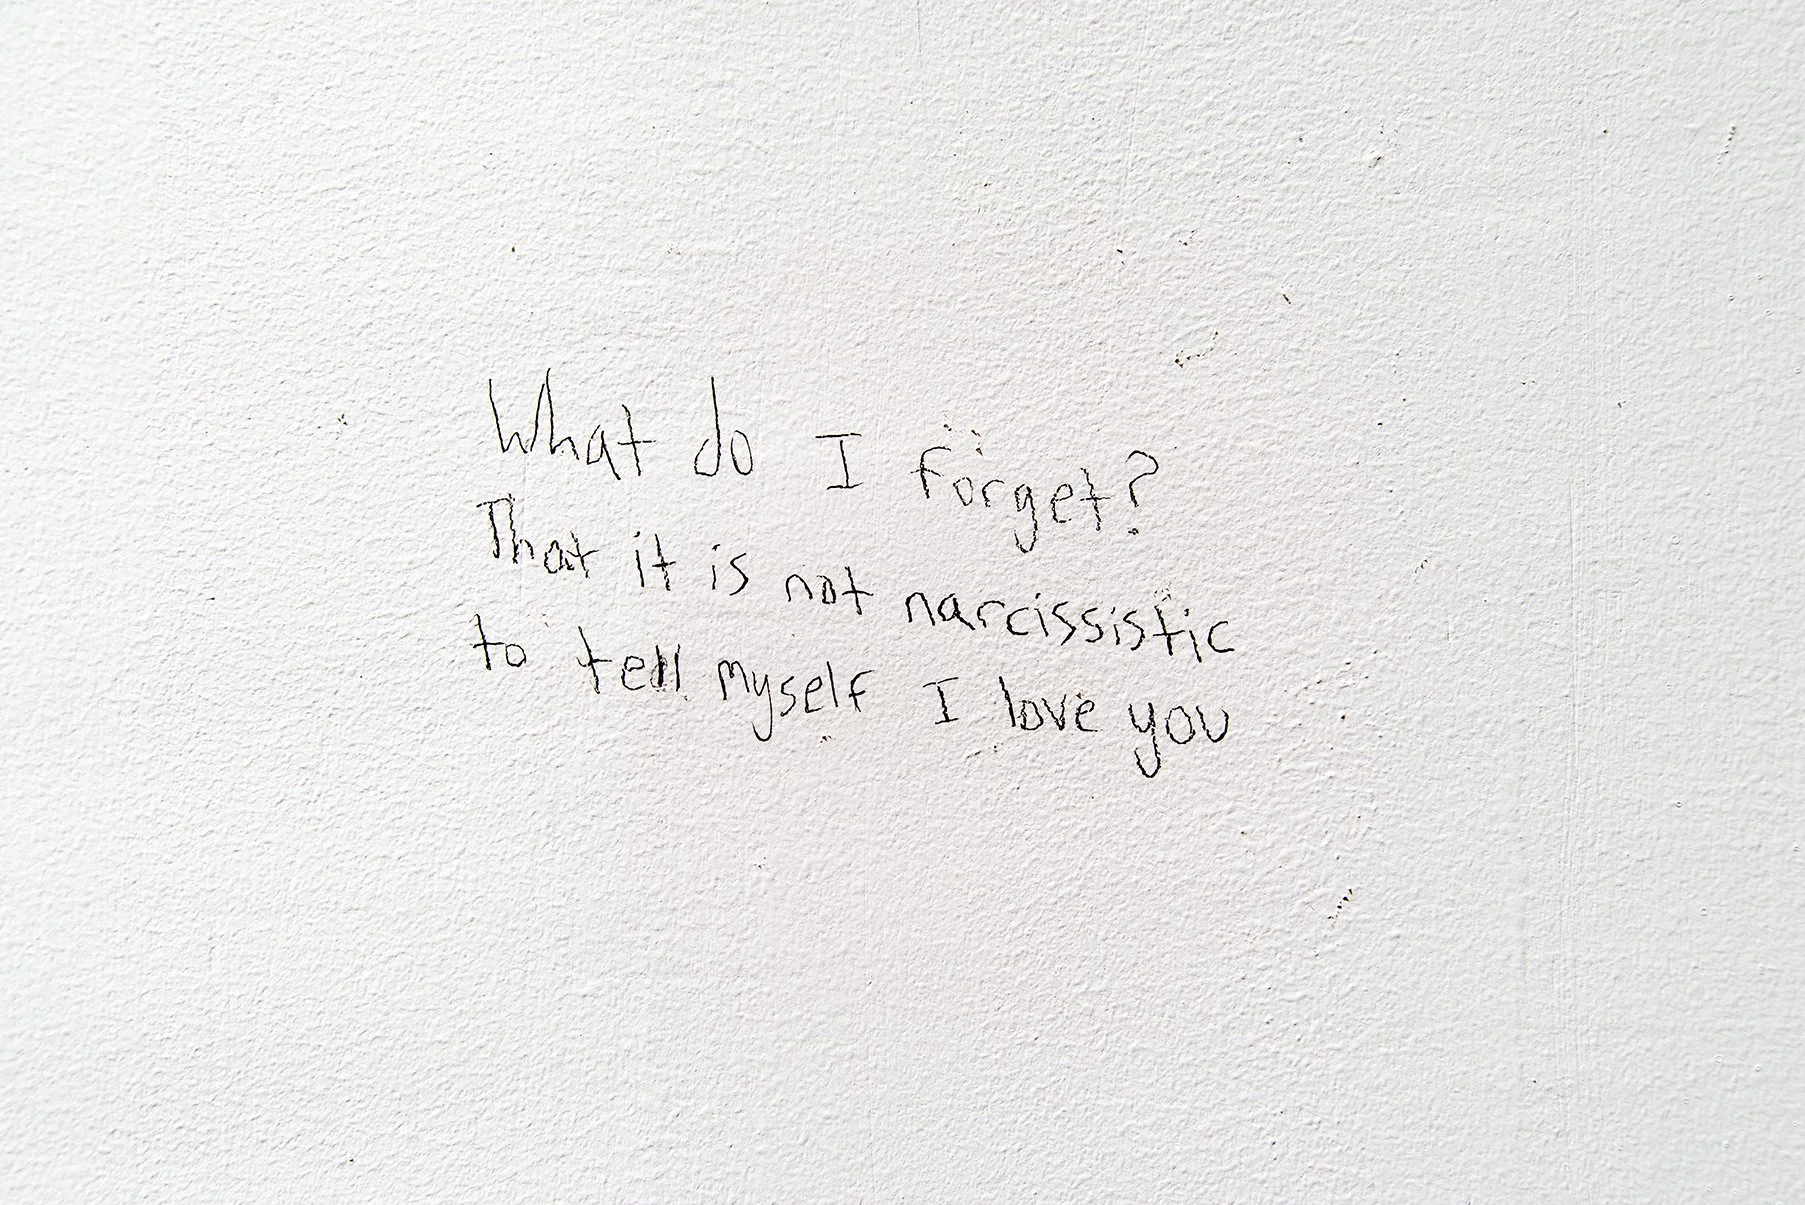 What do I forget?
That it is not narcissistic
to tell myself I love you